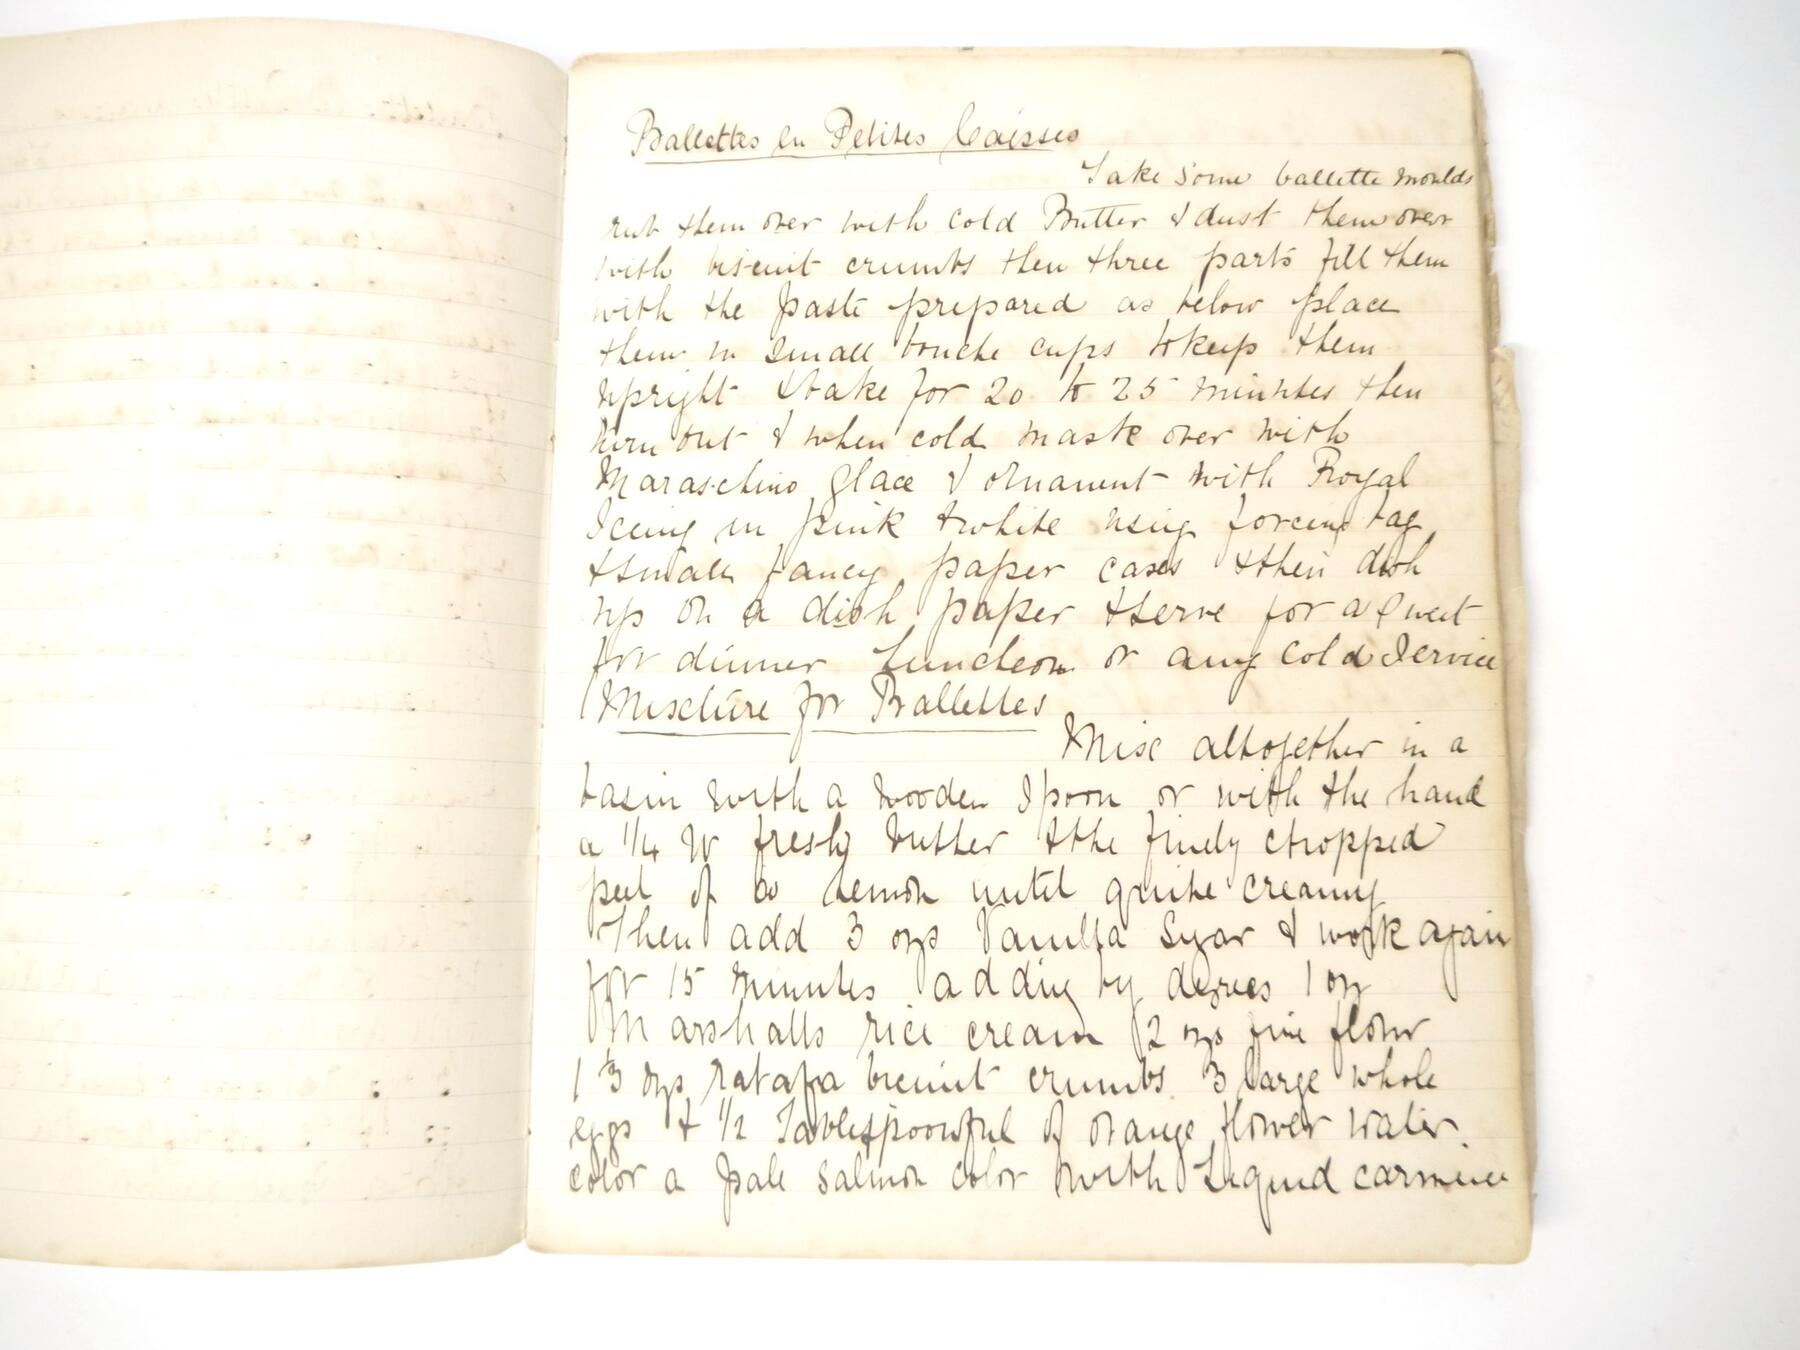 Ballettes en Petites Caisses
Take some ballette moulds
rub them over with cold Butter & dust them over
with biscuit crumbs then three parts fill them
with the paste prepared as below place
them in small bouche cups to keep them
upright & bake for 20 to 25 minutes then
turn out & when cold mask over with
Maraschino glace & ornament with Royal
Iceing in pink & white using forcing bag
& small fancy paper cases & then dish
up on a dish paper & serve for a sweet
for dinner Luncheon or any cold Service
Mixture for Ballettes
Mix altogether in a
basin with a wooden Spoon or with the hand
a 1/4 lb fresh butter & the finely chopped
peel of a lemon until quite creamy
Then add 3 ozs Vanilla Sugar & work again
for 15 minutes adding by degrees 1 oz
Marshalls rice cream 2 ozs fine flour
1 1/3 ozs ratafia biscuit crumbs 3 large whole
eggs & 1/2 Tablespoonful of orange flower water.
color a pale salmon color with Liquid carmine